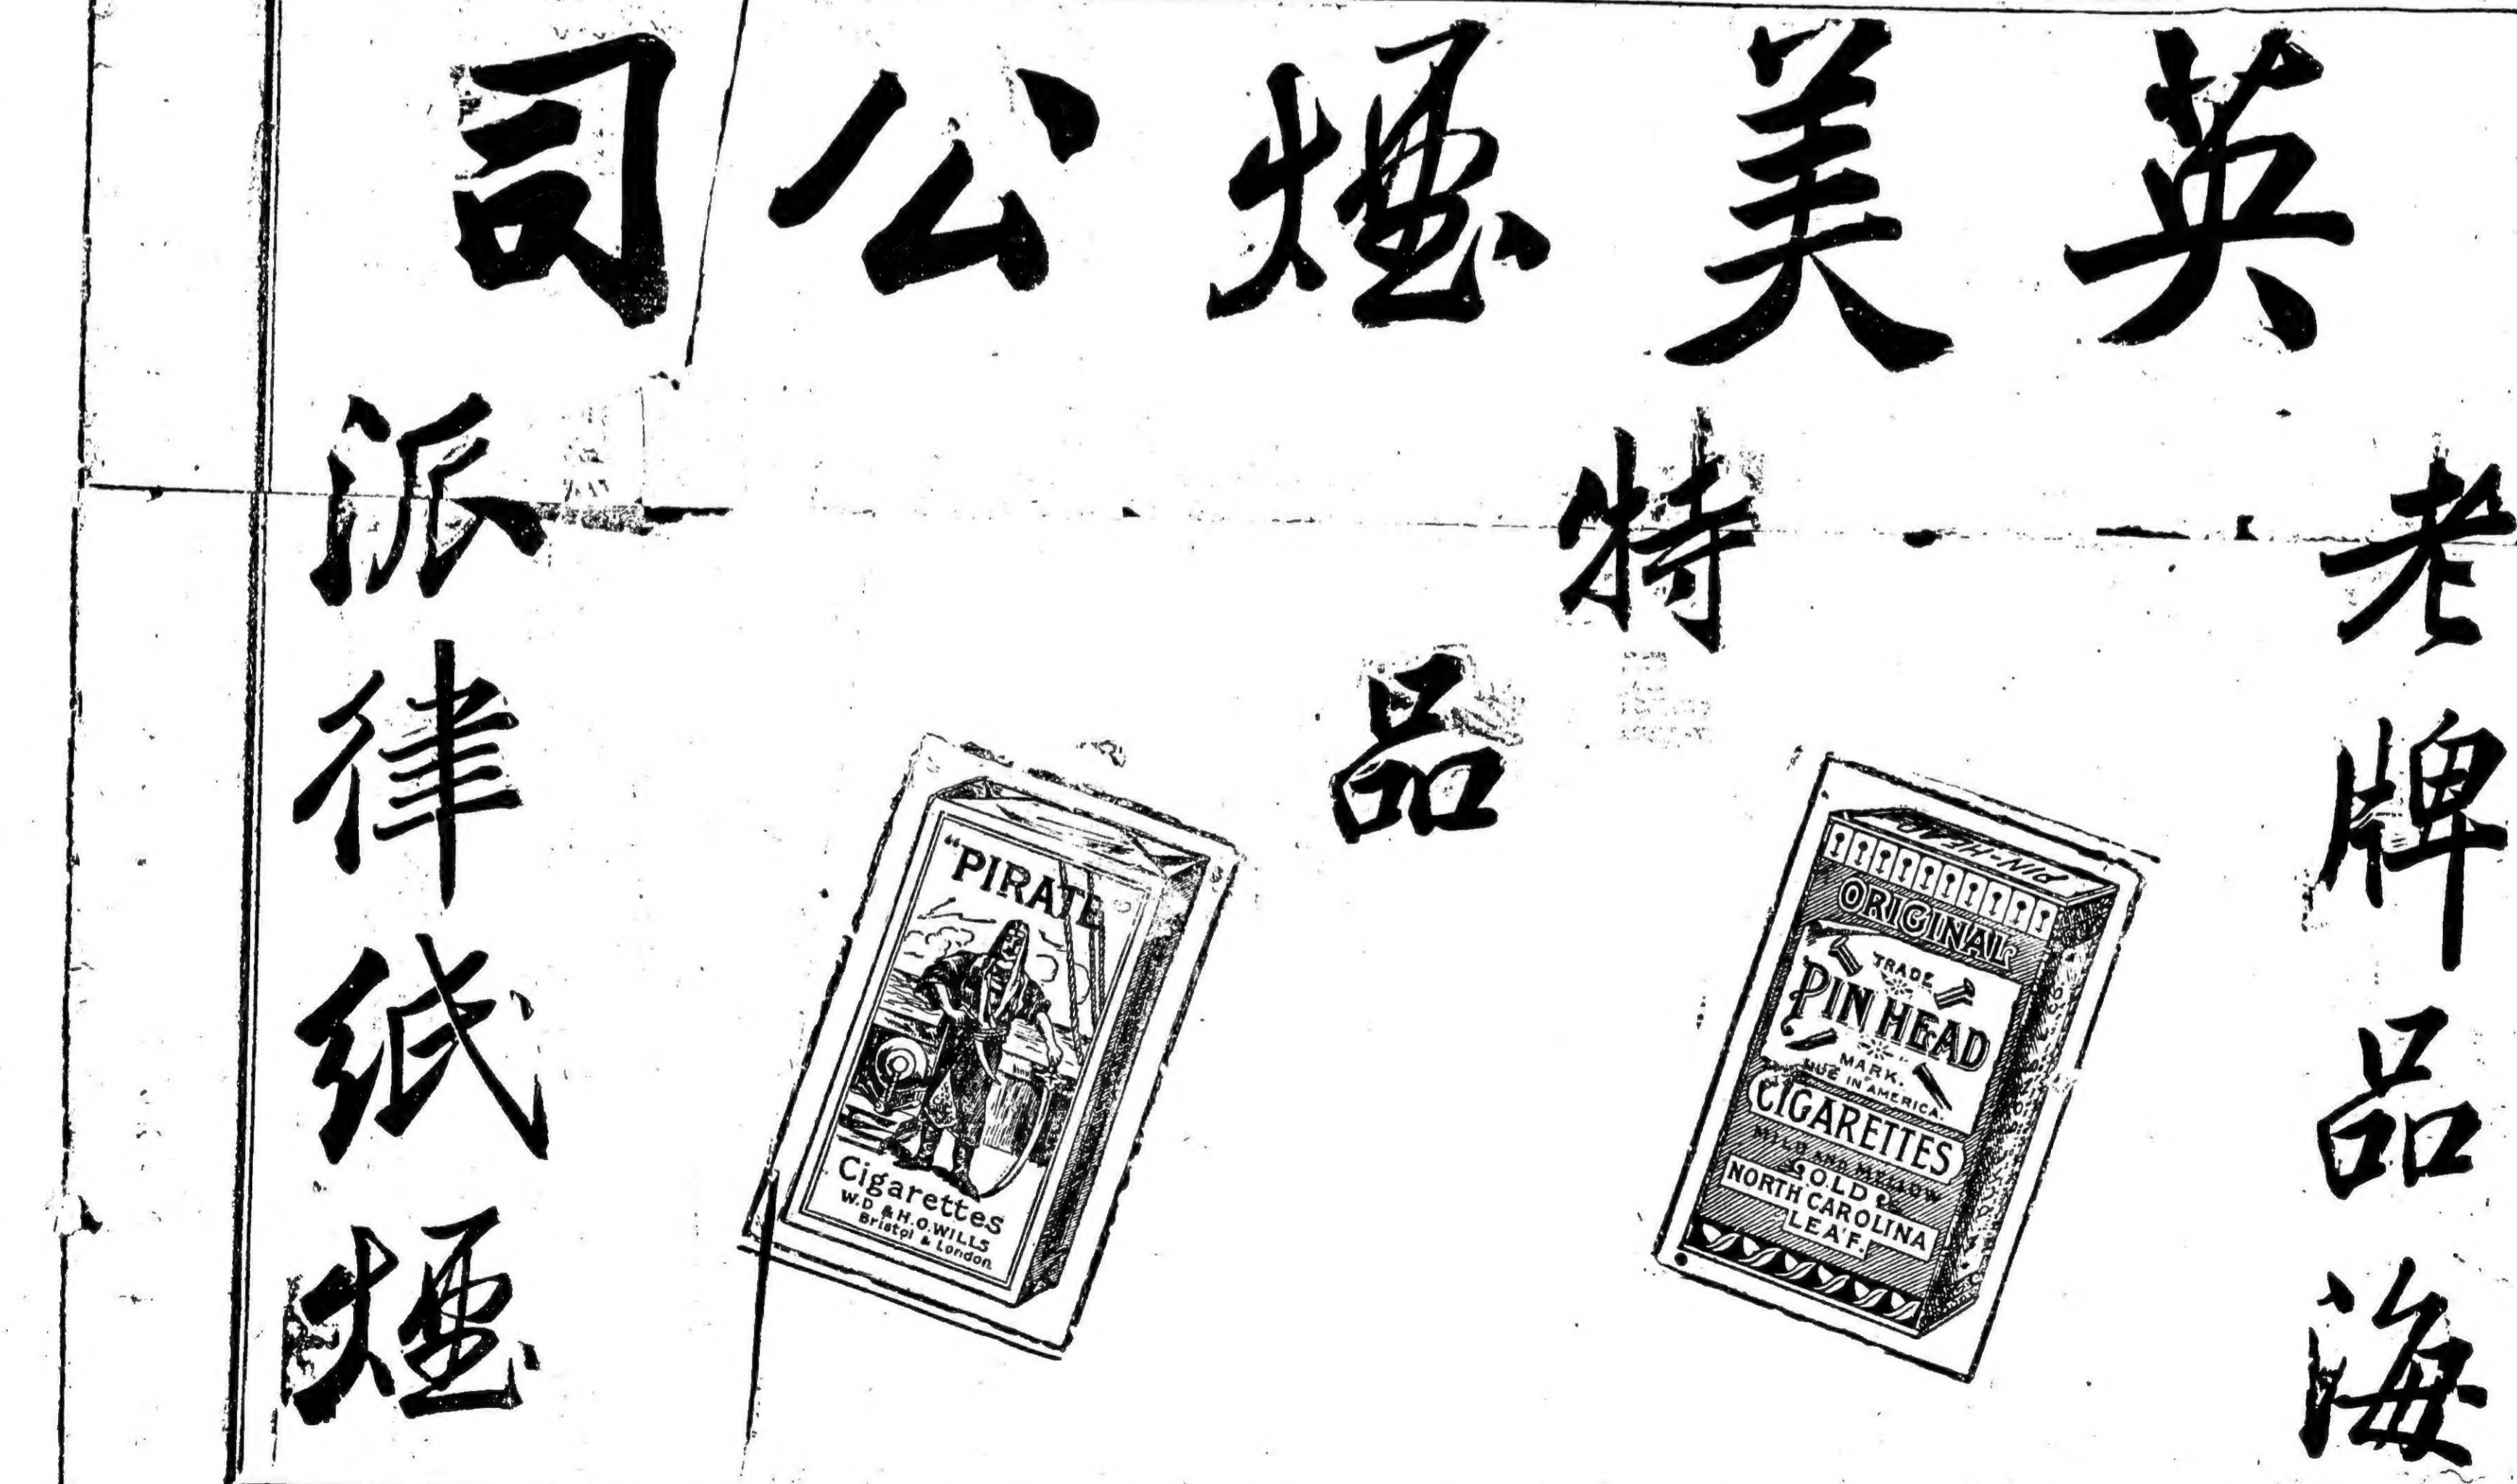 英美煙公司
老牌品海
特品
派律紙煙
PIN-HEAD
ORIGINAL
TRADE
PIN HEAD
MARK.
IN AMERICA.
CIGARETTES
MILD AND MELLOW
OLD
NORTH CAROLINA
LEAF.
"PIRATE
Cigarettes
W.D & H.O. WILLS
Bristol & London